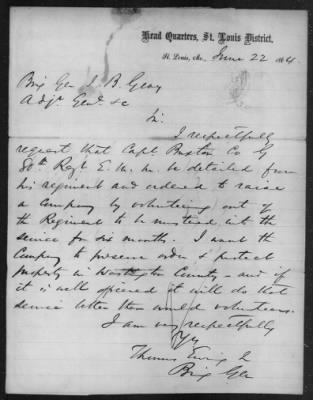 Head Quarters, St. Louis District,
St. Louis, Mo., June 22 1864
Brig Gen J. B. Gray
Adjt Genl &c
Sir
I respectfully
request that Capt. Buxton Co G
80th Regt E. M. M. be detailed from
his regiment and ordered to raise
a company by volunteering out of
the Regiment to be mustered into the
service for six months. I want the
Company to preserve order & protect
property in Washington County - and if
it is well officered it will do that
service better than would volunteers.
I am very respectfully
Yrs
Thomas Ewing Jr
Brig Gen